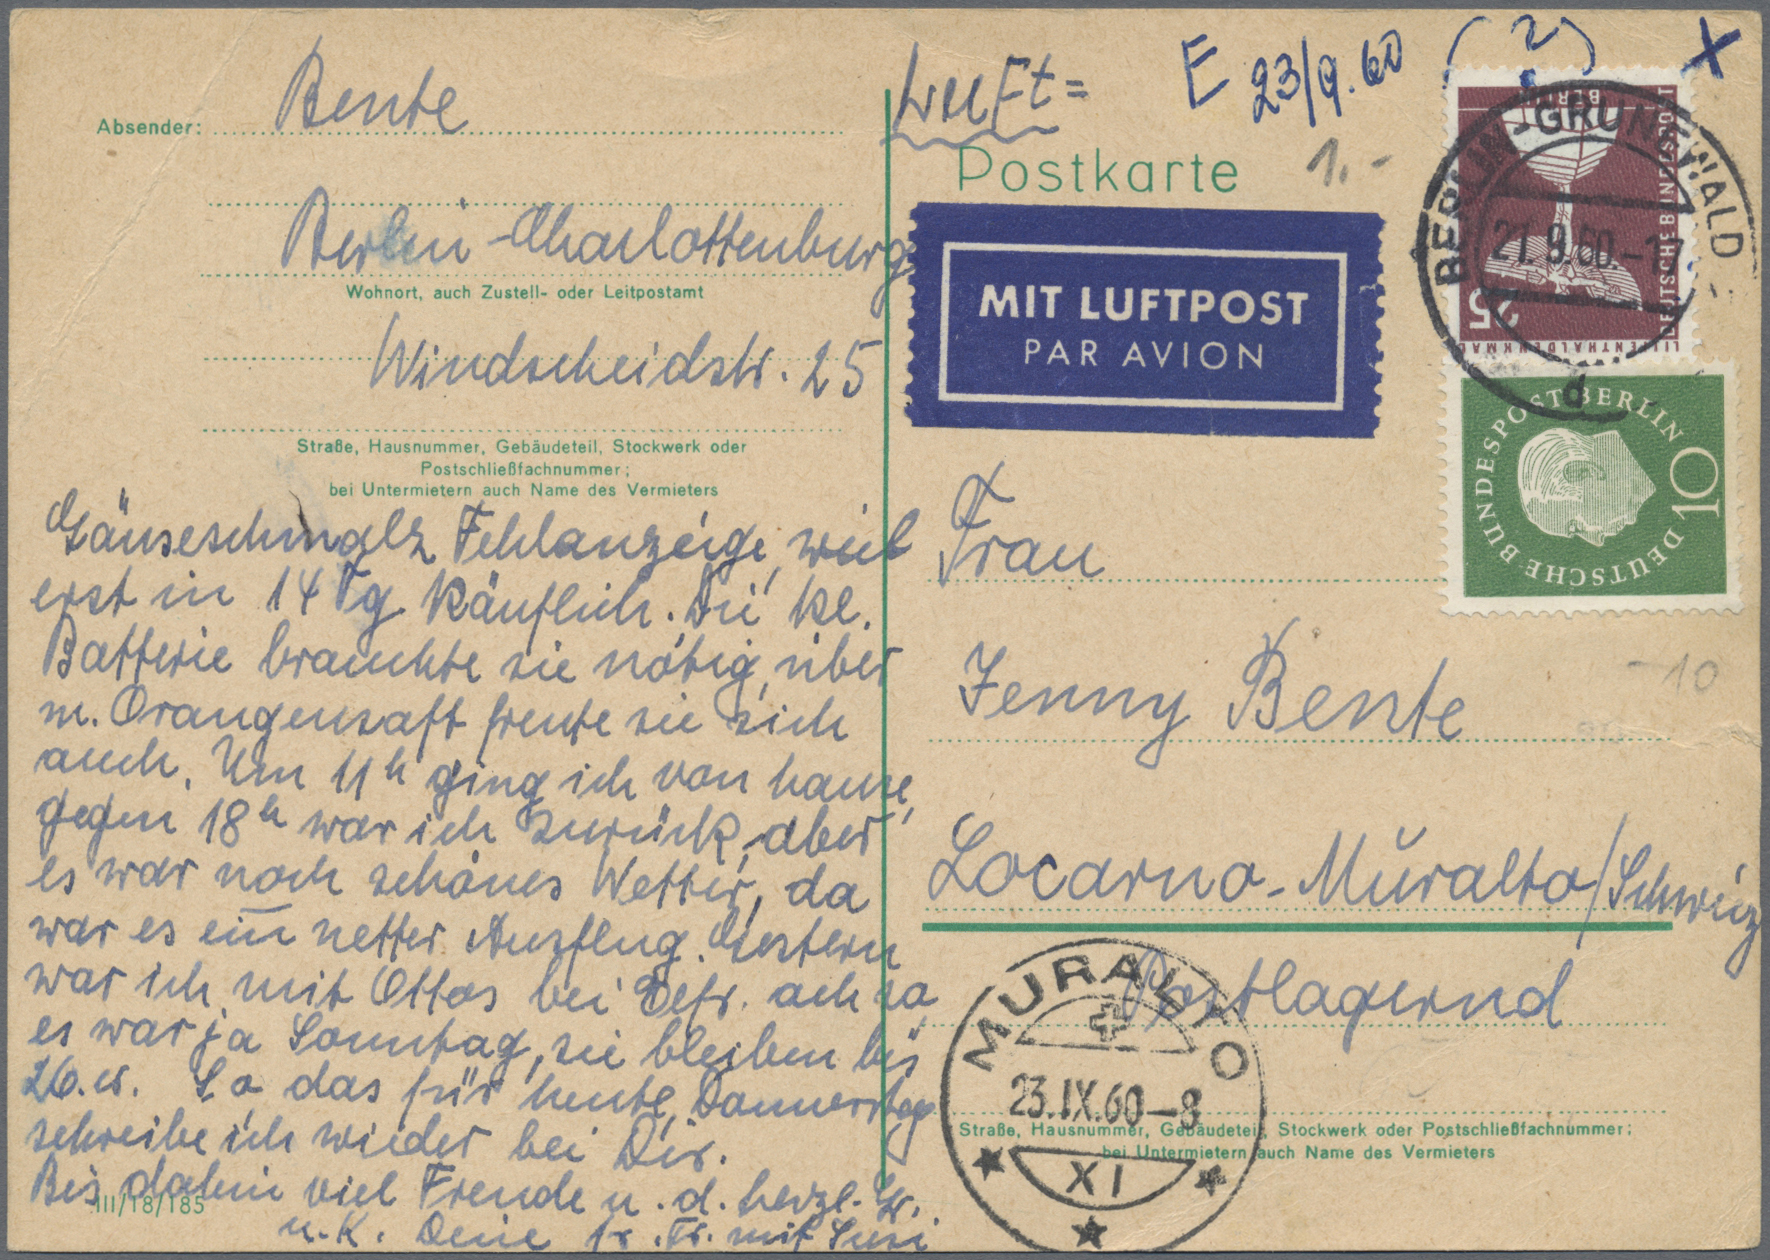 Absender: Bente
Berlin-Charlottenburg
Wohnort, auch Zustell- oder Leitpostamt
Windscheidstr. 25
Straße, Hausnummer, Gebäudeteil, Stockwerk oder
Postschließfachnummer;
bei Untermietern auch Name des Vermieters
Gänseschmalz Fehlanzeige, weil
erst in 14 Tg käuflich. Die kl.
Batterie brauchte sie nötig, über
m. Orangensaft freute sie sich
auch. Um 11h ging ich von hause,
gegen 18h war ich zurück, aber
es war noch schönes Wetter, da
war es ein netter Ausflug. Gestern
war ich mit Ottos bei ach ja,
es war ja Sonntag, sie bleiben bis
26. So das für heute, Donnerstag
schreibe ich wieder bei Dir.
Bis dahin viel Freude u. d. herzl. Gr.
u. K. Deine tr. Fr. mit Susi
III/18/185
Luft=
E 23/9.60 (2) X
Postkarte
1.-
MIT LUFTPOST
PAR AVION
BERLIN-GRUNEWALD
21.9.60.-17
d
DEUTSCHE BUNDESPOST
BERLIN
LILIENTHALDENKMAL
25
DEUTSCHE BUNDESPOST BERLIN
10
Frau
Jenny Bente
-10
Locarno-Muralto/Schweiz
Postlagernd
MURALTO
23.IX.60-8
XI
Straße, Hausnummer, Gebäudeteil, Stockwerk oder Postschließfachnummer;
bei Untermietern auch Name des Vermieters